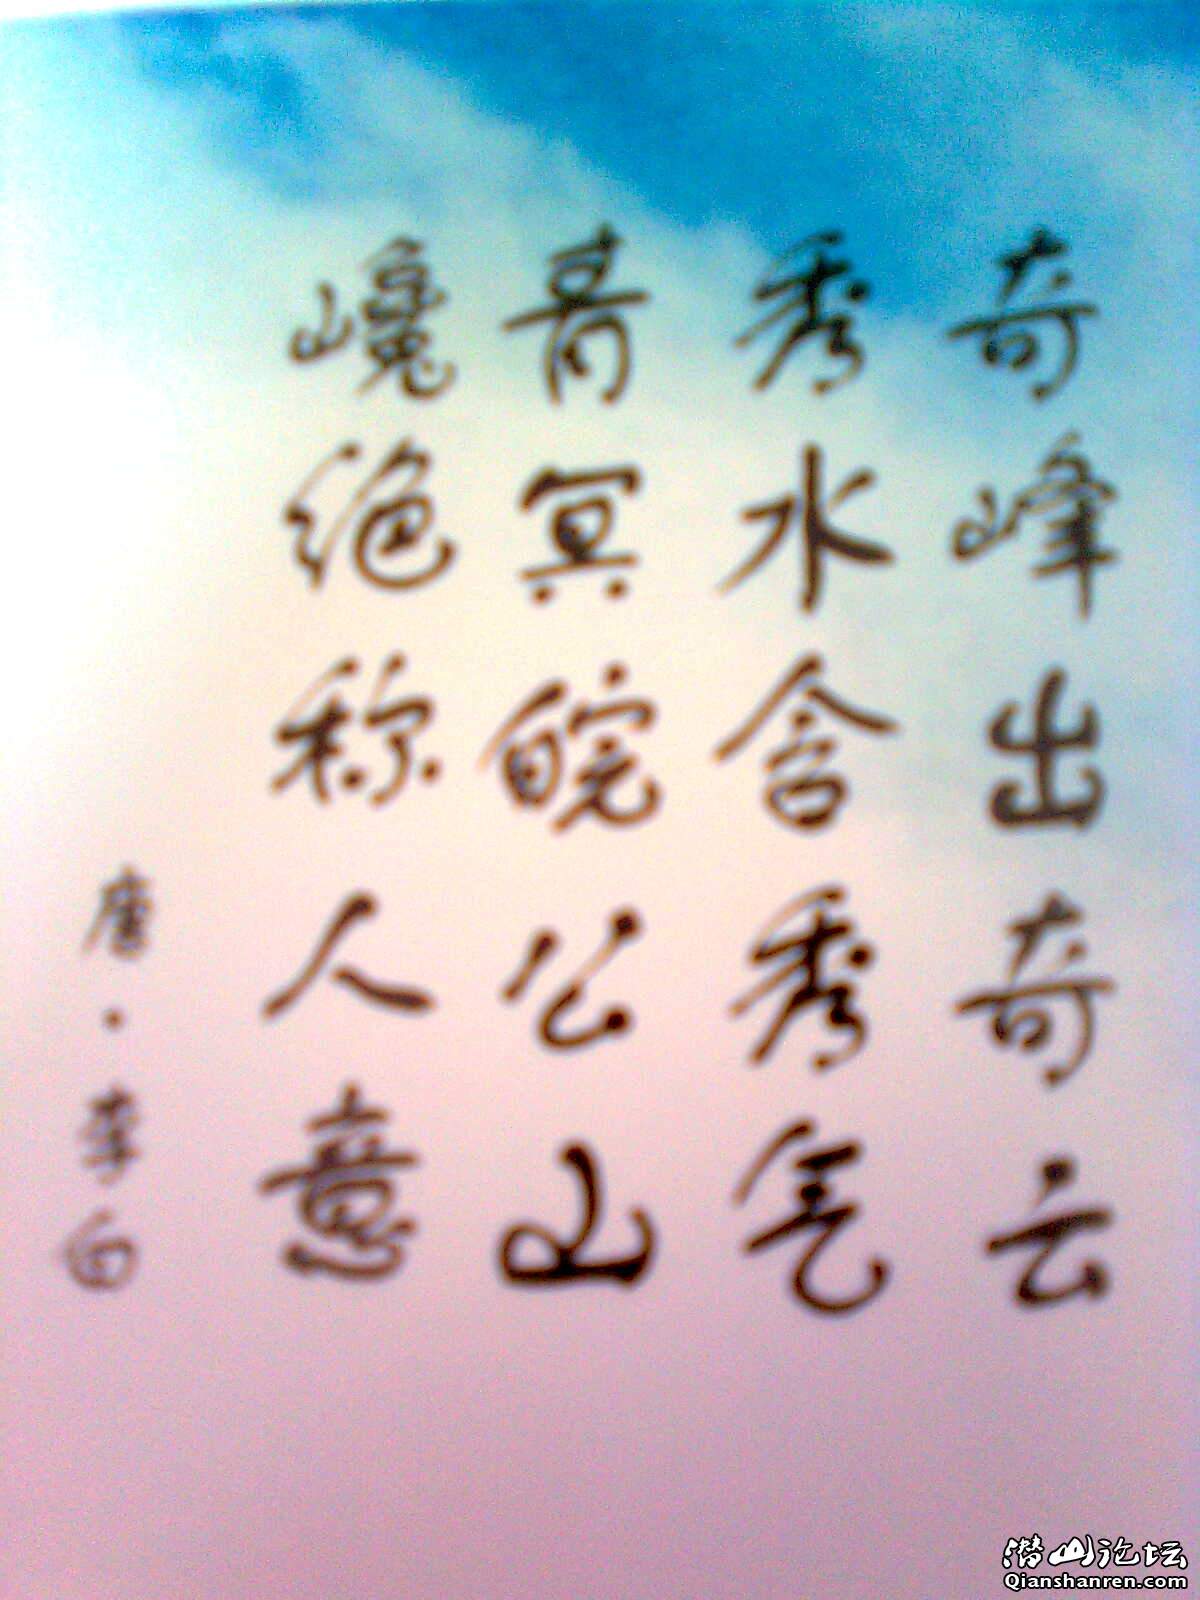 奇峰出奇云
秀水含秀气
青冥皖公山
巉绝称人意
唐·李白
潜山论坛
Qianshanren.com